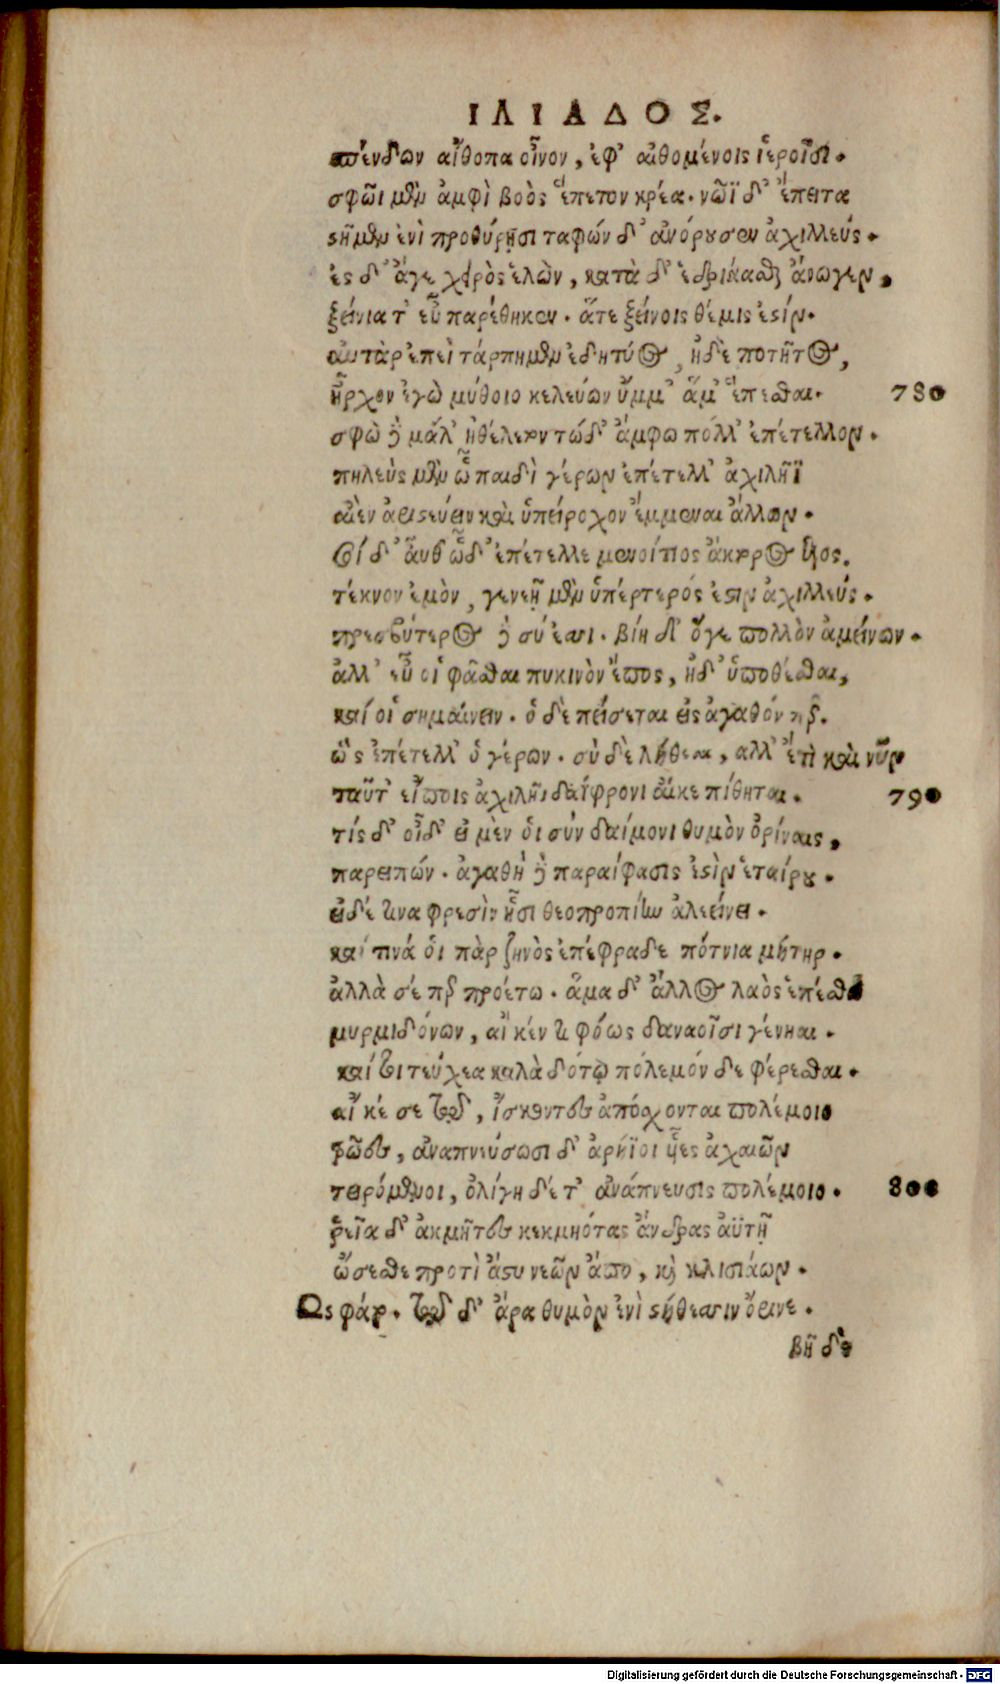 ΙΛΙΑΔΟΣ.
σπένδων αἴθοπα οἶνον, ἐφ᾽ αἰθομένοις ἱεροῖσι.
σφῶϊ μὲν ἀμφὶ βοὸς ἕπετον κρέα. νῶϊ δ᾽ ἔπειτα
στῆμεν ἐνὶ προθύρῃσι ταφών δ᾽ ἀνόρουσεν ἀχιλλεύς.
ἐς δ᾽ ἄγε χειρὸς ἑλὼν, κατὰ δ᾽ ἑδριάασθαι ἄνωγεν,
ξείνια τ᾽ εὖ παρέθηκεν. ἅτε ξείνοις θέμις ἐστίν.
αὐτὰρ ἐπεὶ τάρπημεν ἐδητύος, ἠδὲ ποτῆτος,
ἦρχον ἐγὼ μύθοιο κελεύων ὔμμ᾽ ἅμ᾽ ἕπεσθαι. 780
σφὼ δὲ μάλ᾽ ἠθέλετον τώδ᾽ ἄμφω πόλλ᾽ ἐπέτελλον.
πηλεὺς μὲν ᾧ παιδὶ γέρων ἐπέτελλ᾽ ἀχιλῆϊ
αἰὲν ἀριστεύειν καὶ ὑπείροχον ἔμμεναι ἄλλων.
σοί δ᾽ αὖθ᾽ ὧδ᾽ ἐπέτελλε μενοίτιος ἄκτορος υἱος.
τέκνον ἐμὸν, γενεῇ μὲν ὑπέρτερός ἐστιν ἀχιλλεύς.
πρεσβύτερος δὲ σύ ἐσσι. βίῃ δ᾽ ὅγε πολλὸν ἀμείνων.
ἀλλ᾽ εὖ οἱ φᾶσθαι πυκινὸν ἔπος, ἠδ᾽ ὑποθέσθαι,
καί οἱ σημαίνειν. ὁ δὲ πείσεται εἰς ἀγαθόν περ.
ὣς ἐπέτελλ᾽ ὁ γέρων. σὺ δὲ λήθεαι, αλλ᾽ ἔτι καὶ νῦν
ταῦτ᾽ εἴποις ἀχιλῆϊ δαΐφρονι αἴκε πίθηται. 790
τίς δ᾽ οἶδ᾽ εἰ μὲν ὁι σύν δαίμονι θυμὸν ὀρίναις,
παρειπών. ἀγαθὴ δὲ παραίφασις ἐστὶν ἑταίρου.
εἰ δέ τινα φρεσὶν ᾗσι θεοπροπίην ἀλεείνει.
καί τινά ὁι πὰρ ζηνὸς ἐπέφραδε πότνια μήτηρ.
ἀλλὰ σέ περ προέτω. ἅμα δ᾽ ἄλλος λαὸς ἑπέσθω
μυρμιδόνων, αἴ κέν τι φόως δαναοῖσι γένηαι.
καί τοι τεύχεα καλὰ δότω πόλεμόν δε φέρεσθαι.
αἴ κέ σε τῷδ᾽, ἴσκοντες ἀπόσχονται πολέμοιο
τρῶες, ἀναπνεύσωσι δ᾽ ἀρήϊοι υἷες ἀχαιῶν
τειρόμενοι, ὀλίγη δέ τ᾽ ἀνάπνευσις πολέμοιο. 800
ῥεῖα δ᾽ ἀκμῆτες κεκμηότας ἄνδρας ἀϋτῇ
ὤσεσθε προτὶ ἄστυ νεῶν ἄπο, καὶ κλισιάων.
Ως φάτο. τῷ δ᾽ ἄρα θυμὸν ἐνὶ στήθεσσιν ὄρινε.
βῆ δὲ
Digitalisierung gefördert durch die Deutsche Forschungsgemeinschaft - DFG